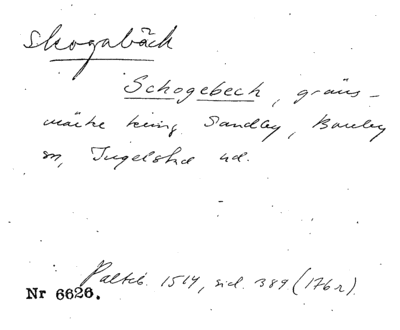 Skogabäck
Schogebech, gräns-
märke kring Sandby, Bowby
sn, Ingelstad hd.
Palteb. 1514, sid. 389 (176 r).
Nr 6626.